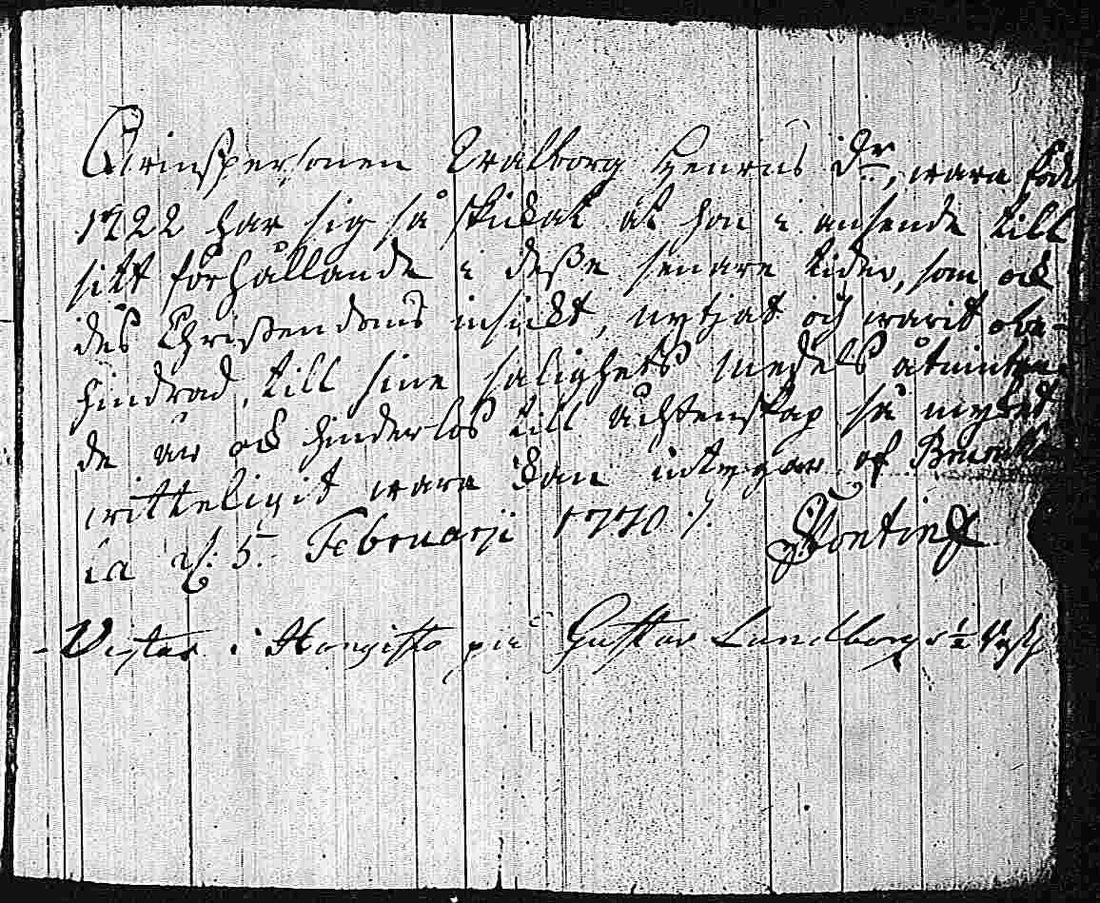 Qvinspersonen Walborg Henrics Dr, wara född
1722 har sig så skickat at hon i anseende till
sitt förhållande i desse senare tider, som ock
des Christendoms insickt, nytjat och warit obe-
hindrad, till sine salighets medels åtniutan-
de är ock hinderlös till ächtenskap så mycket
witterligit wara kan intygar af
la d. 5. Februarji 1770 ./. Pontin
i på Gustav Lundborgs